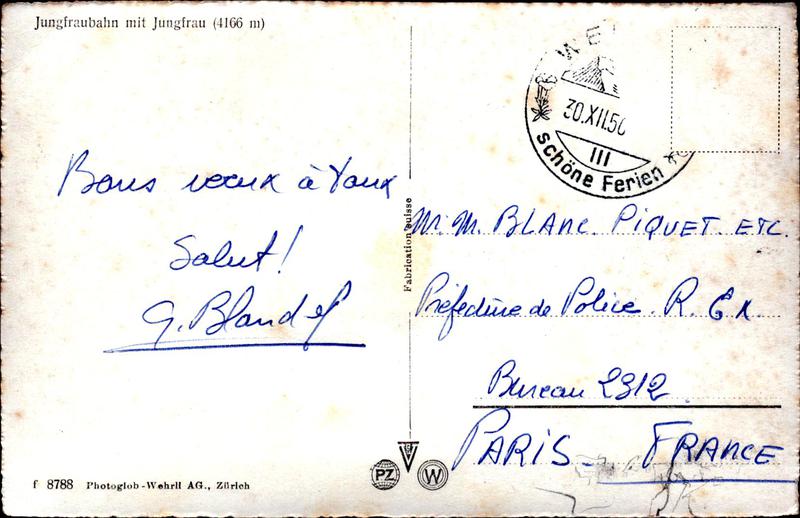 Jungfraubahn mit Jungfrau (4166 m)
WE
30.XII.56
III
schöne Ferien
Bons vœux à tous
Salut!
G. Blandel
Fabrication suisse
M.M. BLANC. PIQUET. ETC.
Préfecture de Police. R. Ex.
Bureau 2312
PARIS - FRANCE
PZ
W
f 8788 Photoglob-Wehrli AG., Zürich